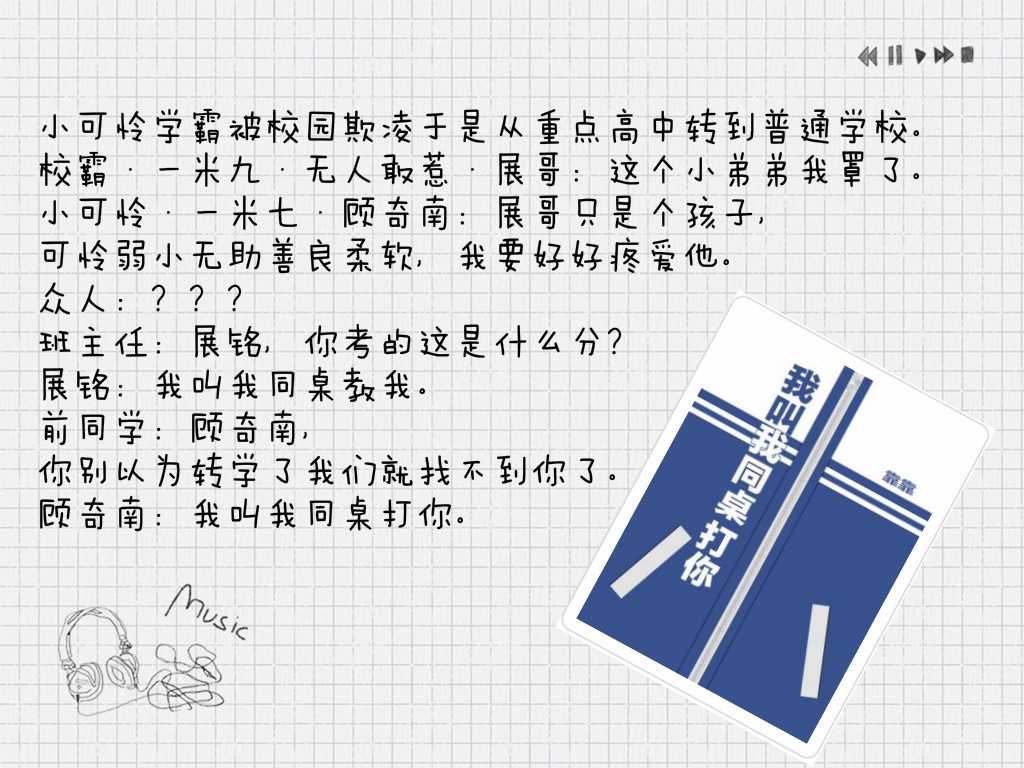 小可怜学霸被校园欺凌于是从重点高中转到普通学校。
校霸·一米九·无人敢惹·展哥：这个小弟弟我罩了。
小可怜·一米七·顾奇南：展哥只是个孩子，
可怜弱小无助善良柔软，我要好好疼爱他。
众人：？？？
班主任：展铭，你考的这是什么分？
展铭：我叫我同桌教我。
前同学：顾奇南，
你别以为转学了我们就找不到你了。
顾奇南：我叫我同桌打你。
我叫我同桌打你
靠靠
Music